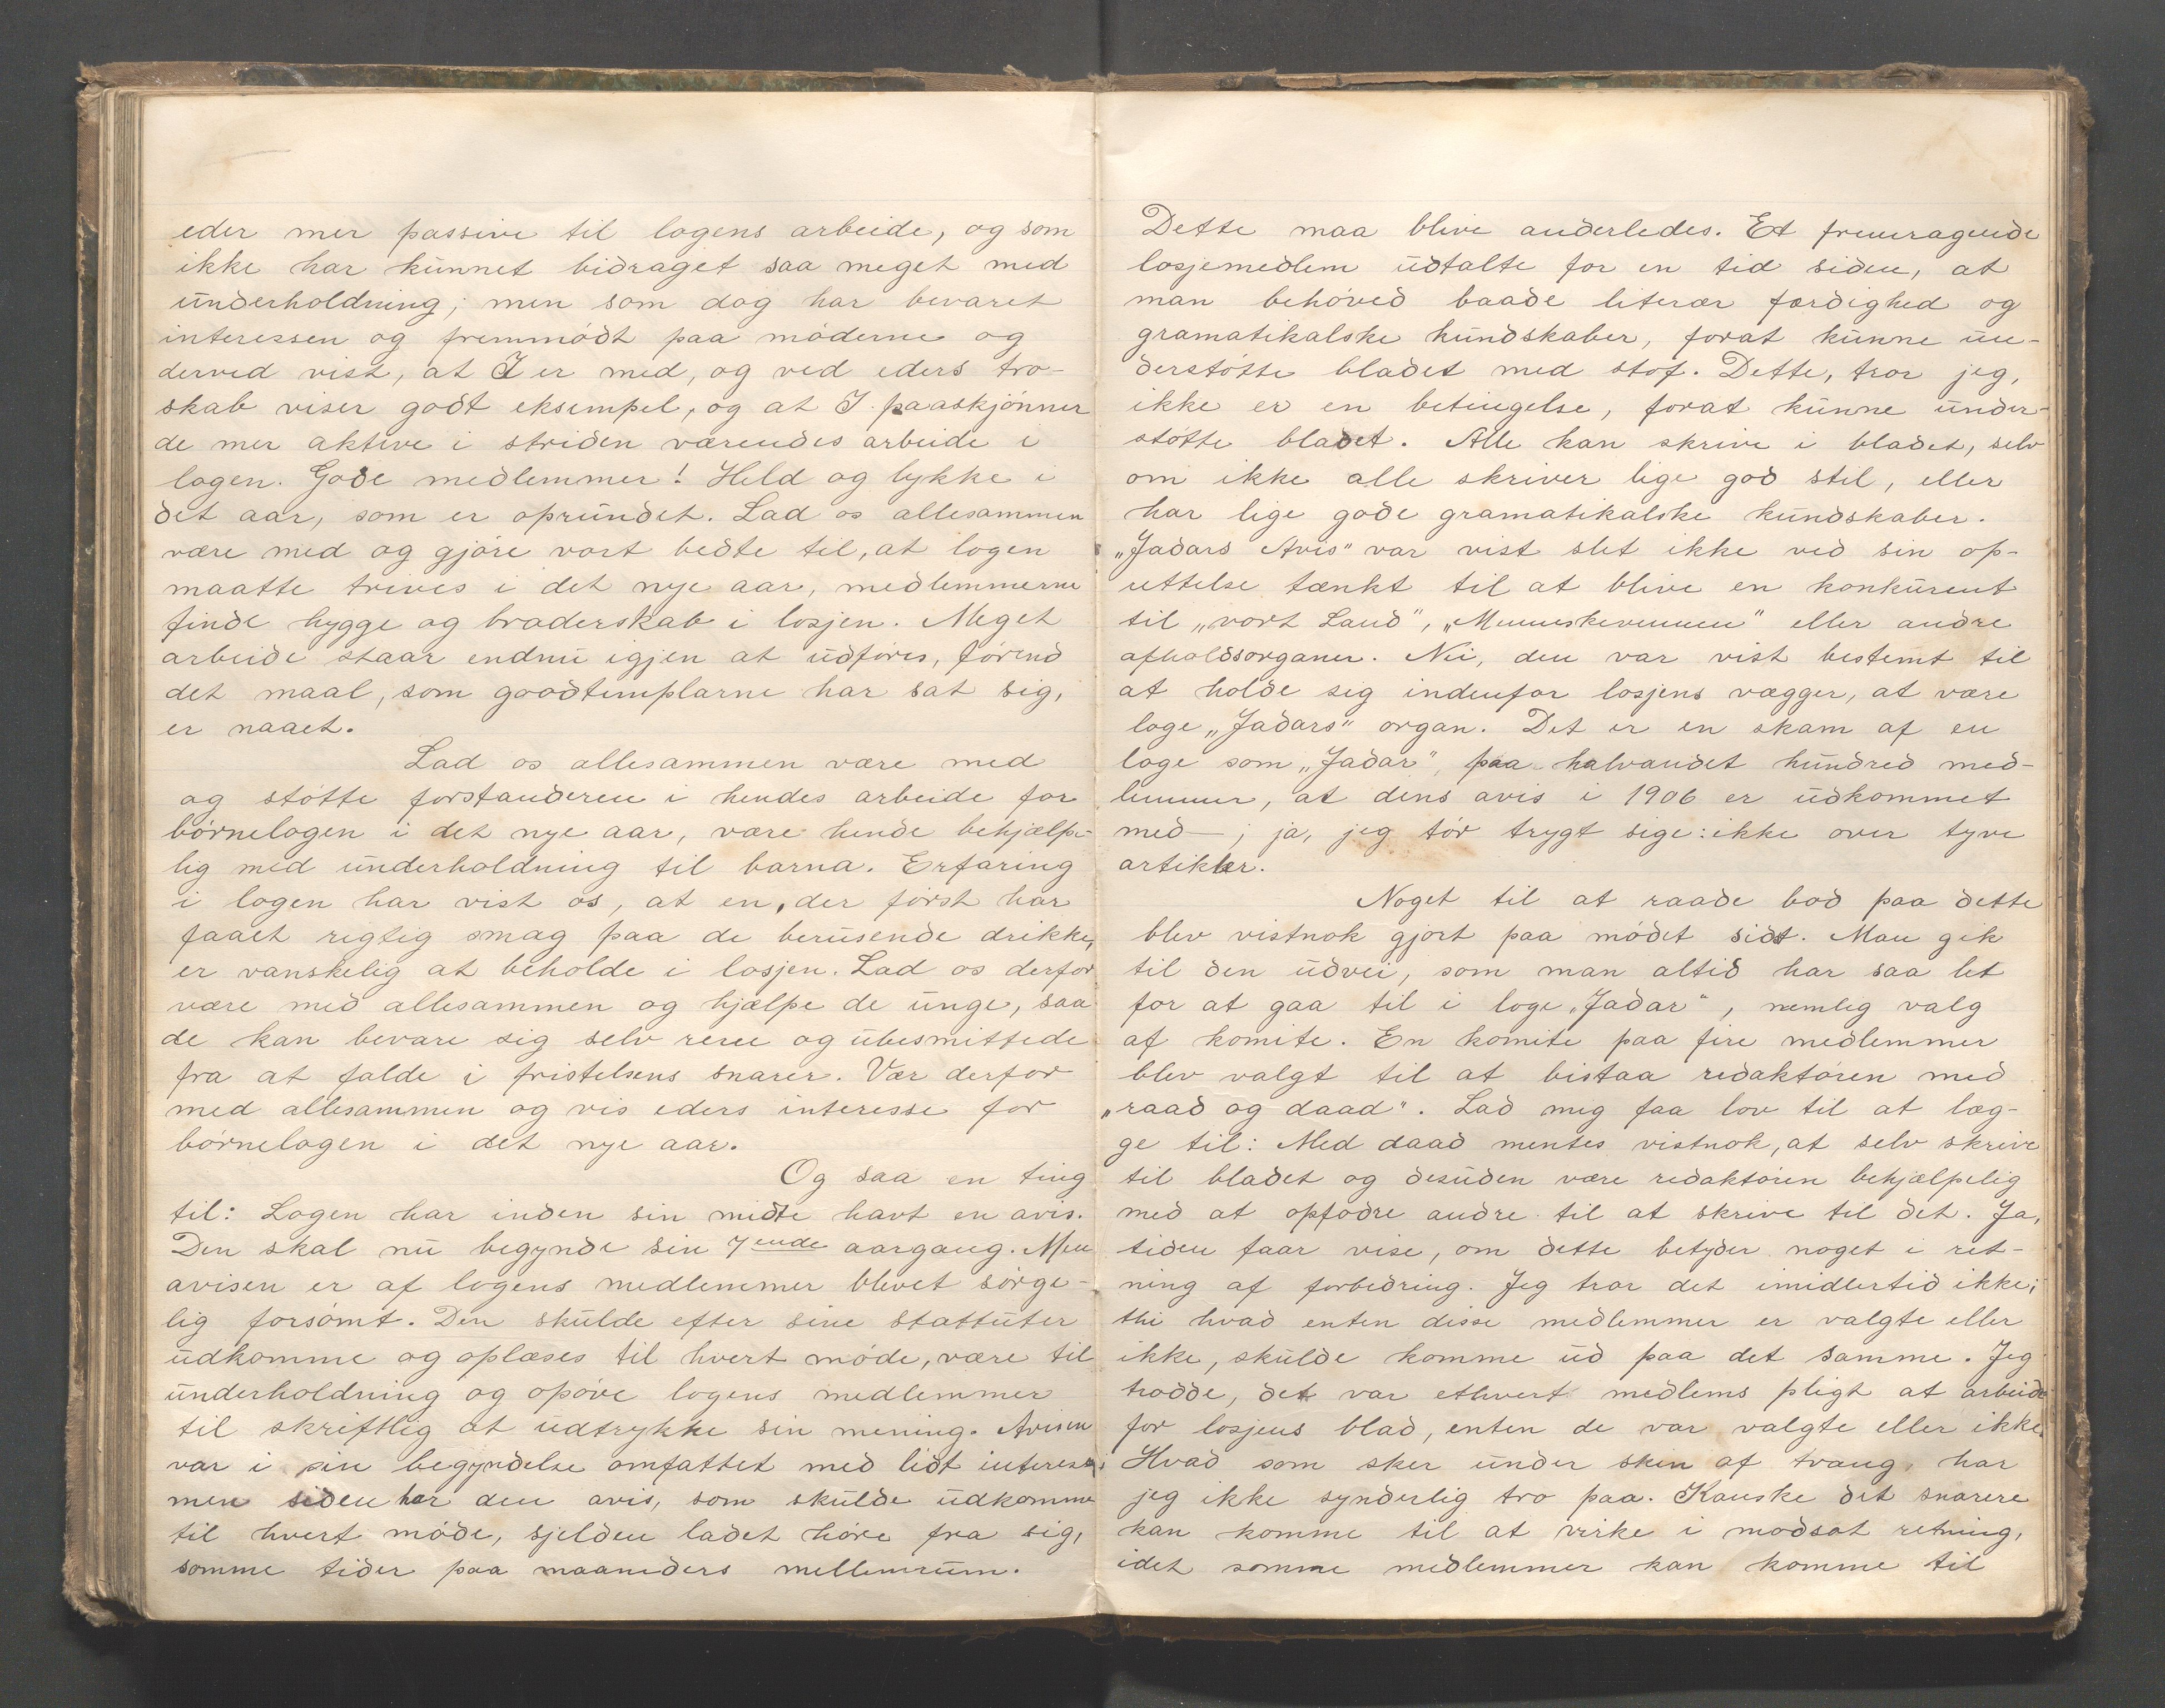 eder mer passive til logens arbeide, og som
ikke har kunnet bidraget saa meget med
underholdning; men som dog har bevaret
interessen og fremmødt paa møderne og
derved vist, at I er med, og ved eders tro-
skab viser godt eksempel, og at I paaskjønner
de mer aktive i striden værendes arbeide i
logen. Gode medlemmer! Held og lykke i
det aar, som er oprundet. Lad os allesammen
være med og gjøre vort bedste til, at logen
maatte trives i det nye aar, medlemmerne
finde hygge og broderskab i losjen. Meget
arbeide staar endnu igjen at udføres, førend
det maal, som goodtemplarne har sat sig,
er naaet.
Lad os allesammen være med
og støtte forstanderen i hendes arbeide for
børnelogen i det nye aar, være hende behjælpe-
lig med underholdning til barna. Erfaring
i logen har vist os, at en, der først har
faaet rigtig smag paa de berusende drikke,
er vanskelig at beholde i losjen. Lad os derfor
være med allesammen og hjælpe de unge, saa
de kan bevare sig selv rene og ubesmittede
fra at falde i fristelsens snarer. Vær derfor
med allesammen og vis eders interesse for
børnelogen i det nye aar.
Og saa en ting
til: Logen har inden sin midte havt en avis.
Den skal nu begynde sin 7ende aargang. Men
avisen er af logens medlemmer blevet sørge-
lig forsømt. Den skulde efter sine stattuter
udkomme og oplæses til hvert møde, være til
underholdning og opøve logens medlemmer
til skriftlig at udtrykke sin mening. Avisen
var i sin begyndelse omfattet med lidt interesse,
men siden har den avis, som skulde udkomme
til hvert møde, sjelden ladet høre fra sig,
somme tider paa maaneders mellemrum.
Dette maa blive anderledes. Et fremragende
losjemedlem udtalte for en tid siden, at
man behøved baade literær færdighed og
gramatikalske kundskaber, forat kunne un-
derstøtte bladet med stof. Dette, tror jeg,
ikke er en betingelse, forat kunne under-
støtte bladet. Alle kan skrive i bladet, selv
om ikke alle skriver lige god stil, eller
har lige gode gramatikalske kundskaber.
„Jadars Avis" var vist slet ikke ved sin op-
rettelse tænkt til at blive en konkurent
til „vort Land", „Menneskevennen" eller andre
afholdsorganer. Nei, den var vist bestemt til
at holde sig indenfor losjens vægger, at være
loge „Jadars" organ. Det er en skam af en
loge som „Jadar", paa halvandet hundred med-
lemmer, at dens avis i 1906 er udkommet
med—; ja, jeg tør trygt sige: ikke over tyve
artikler.
Noget til at raade bod paa dette
blev vistnok gjort paa mødet sidst. Man gik
til den udvei, som man altid har saa let
for at gaa til i loge „Jadar", nemlig valg
af komite. En komite paa fire medlemmer
blev valgt til at bistaa redaktøren med
„raad og daad". Lad mig faa lov til at læg-
ge til: Med daad mentes vistnok, at selv skrive
til bladet og desuden være redaktøren behjælpelig
med at opfodre andre til at skrive til det. Ja,
tiden faar vise, om dette betyder noget i ret-
ning af forbedring. Jeg tror det imidlertid ikke;
thi hvad enten disse medlemmer er valgte eller
ikke, skulde komme ud paa det samme. Jeg
trodde, det var ethvert medlems pligt at arbeide
for losjens blad, enten de var valgte eller ikke.
Hvad som sker under skin af tvang, har
jeg ikke synderlig tro paa. Kanske det snarere
kan komme til at virke i modsat retning,
idet somme medlemmer kan komme til